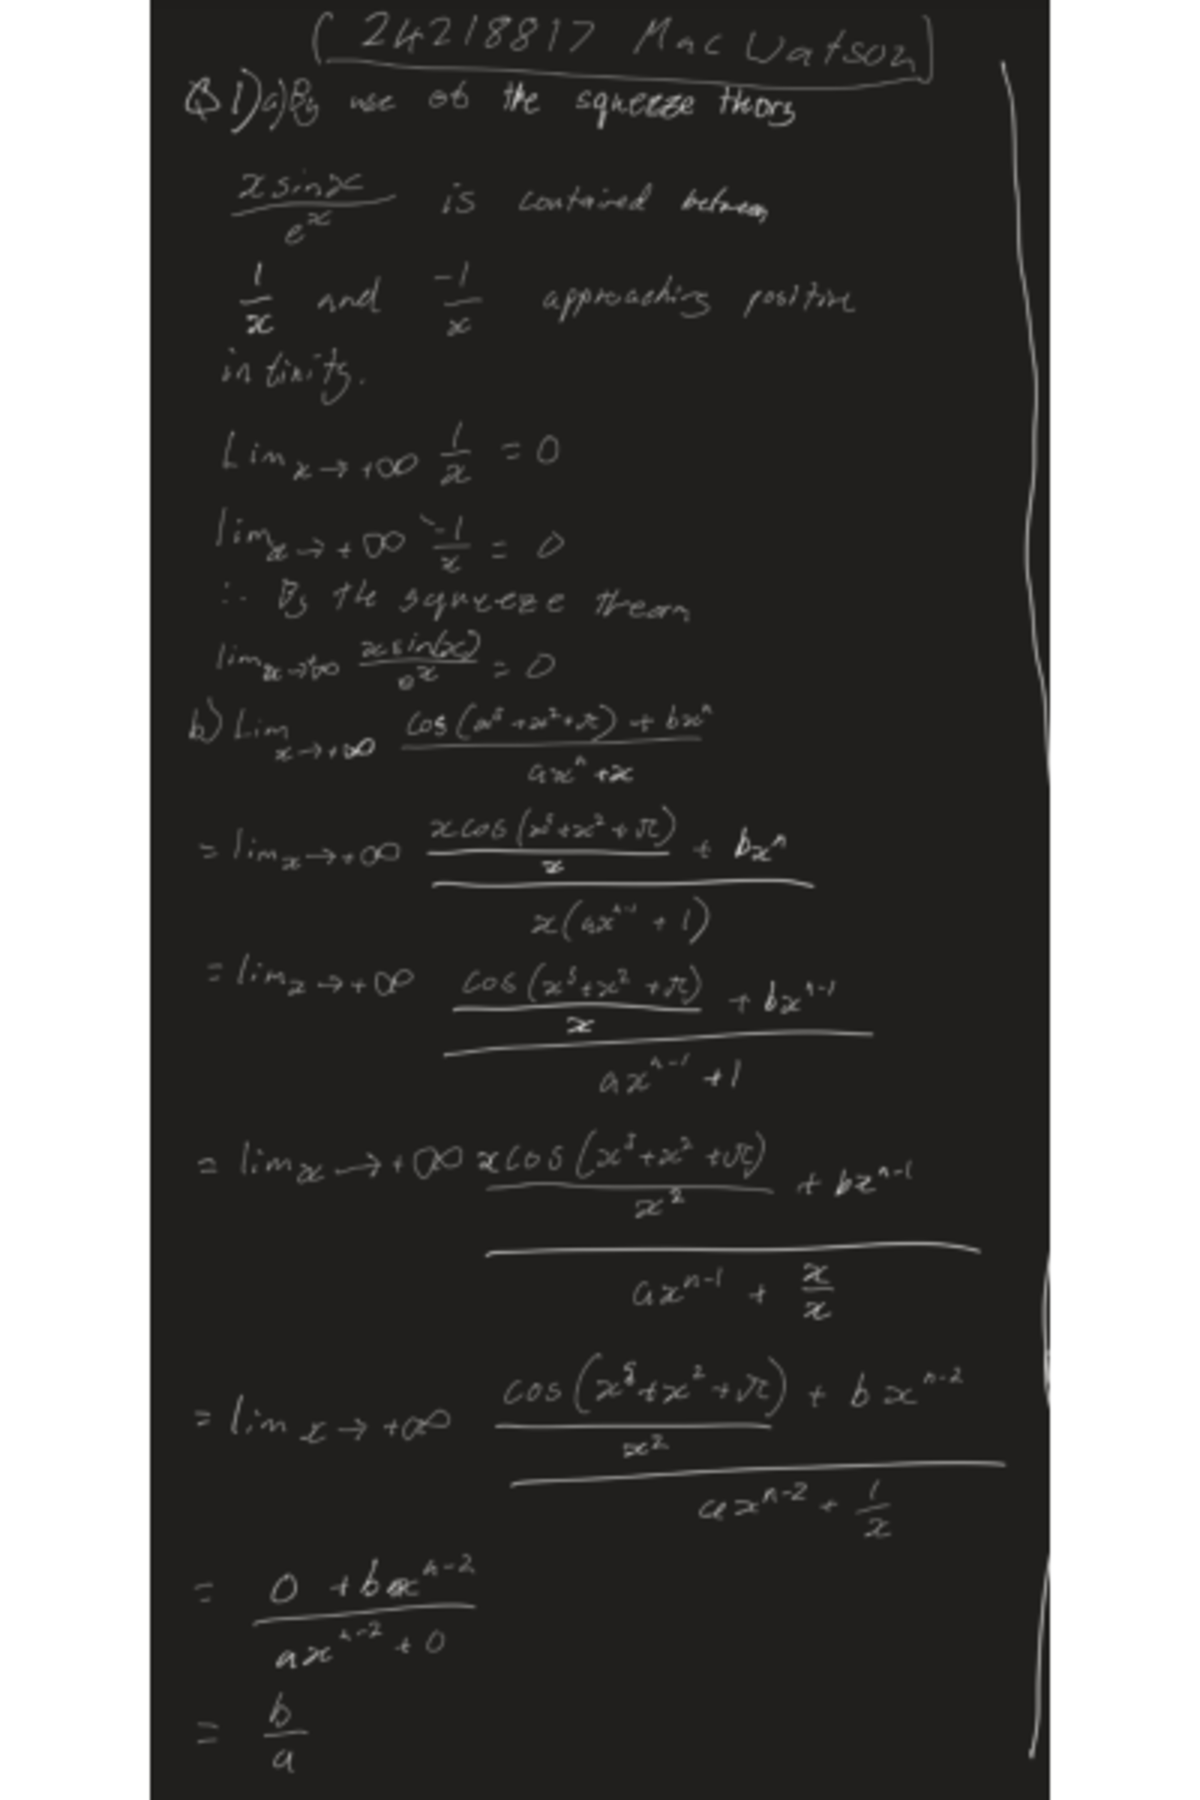 (24218817 Mac Watson)
Q1)a)By use of the squeeze theory
x sinx / e^x is contained between
1/x and -1/x approaching positive
infinity.
Lim x→+∞ 1/x = 0
lim x→+∞ -1/x = 0
∴ By the squeeze theorm
lim x→+∞ x sin(x) / e^x = 0
b) Lim x→+∞ (cos(x^5+x^2+π) + bx^n) / (ax^n+x)
= lim x→+∞ (x cos(x^5+x^2+π)/x + bx^n) / (x(ax^(n-1) + 1))
= lim x→+∞ (cos(x^5+x^2+π)/x + bx^(n-1)) / (ax^(n-1) +1)
= lim x→+∞ (x cos(x^5+x^2+π)/x^2 + bx^(n-1)) / (ax^(n-1) + x/x)
= lim x→+∞ (cos(x^5+x^2+π)/x^2 + bx^(n-2)) / (ax^(n-2) + 1/x)
= (0 + bx^(n-2)) / (ax^(n-2) + 0)
= b/a